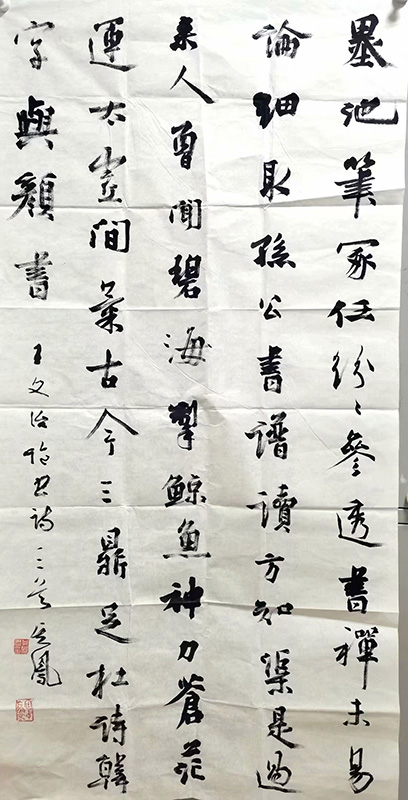 墨池筆冢任紛〻參透書禪未易
論細取孫公書譜讀方知渠是過
來人曾聞碧海掣鯨魚神力蒼茫
運太虛間氣古今三鼎足杜詩韓
字與顏書
王文治論書詩二首鳳